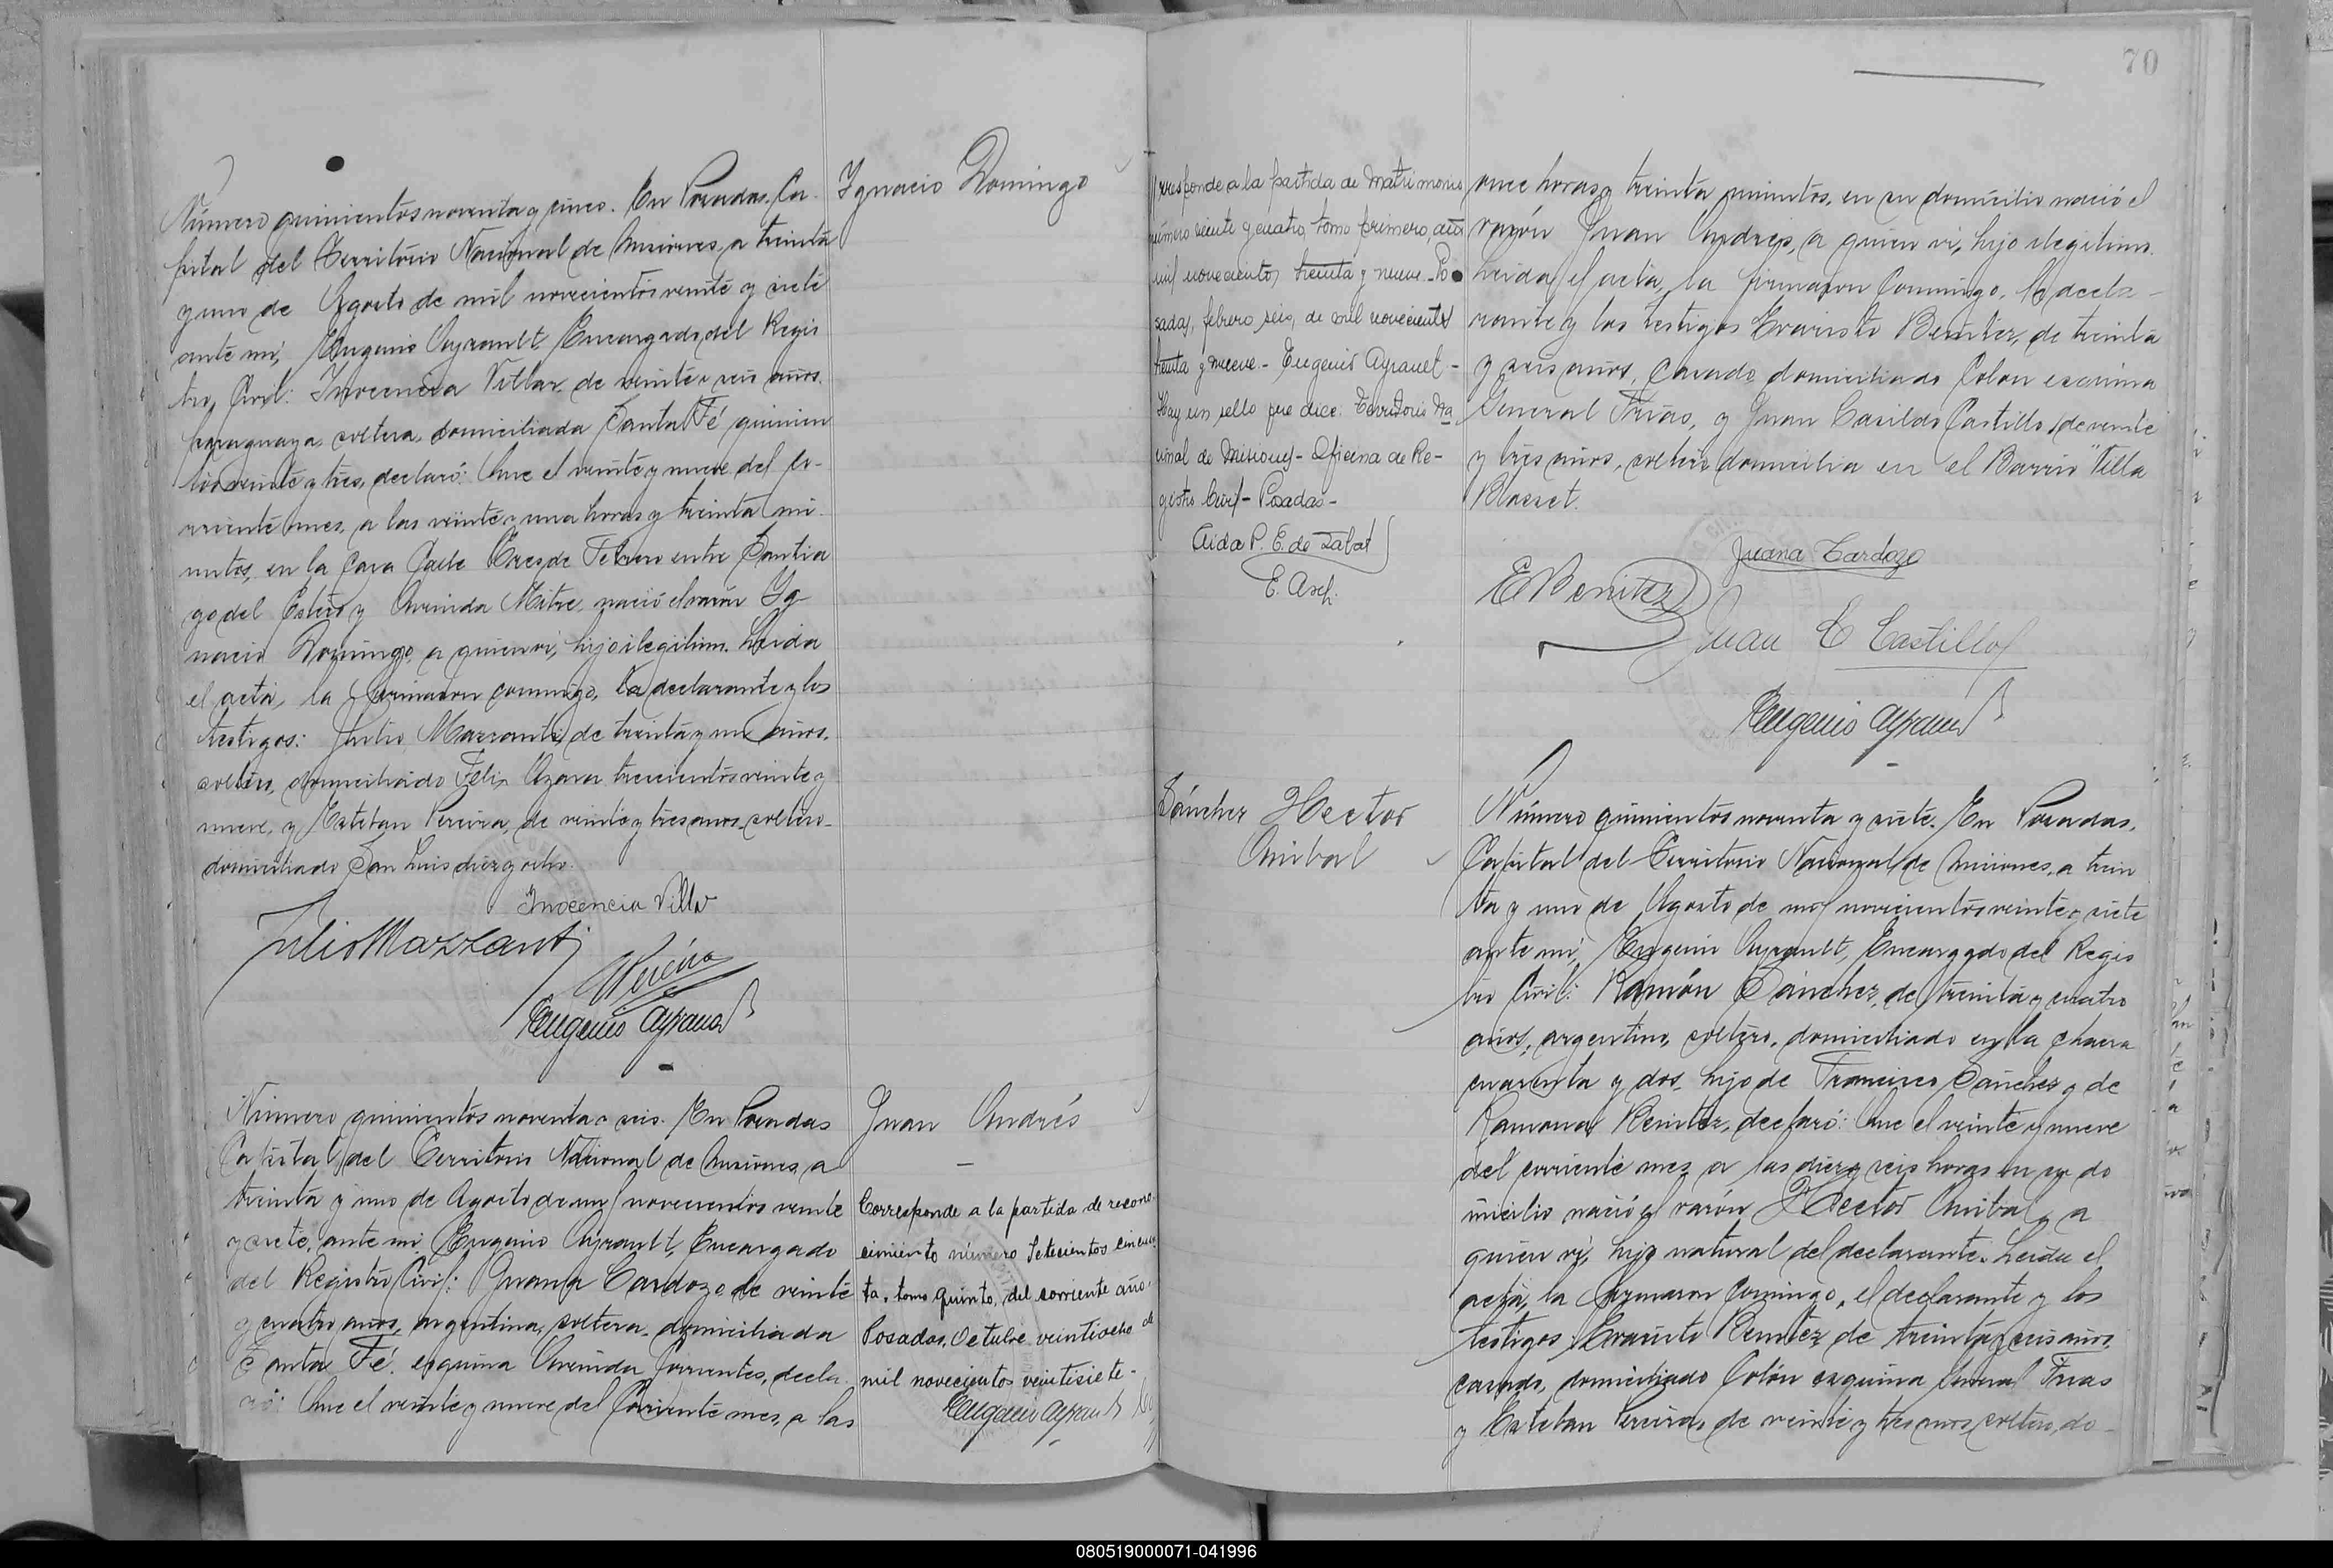 Ygnacio Domingo
Número quinientos noventa y cinco. En Posadas, Ca-
pital del Territorio Nacional de Misiones, a treinta
y uno de Agosto de mil novecientos veinte y siete
ante mi, Eugenio Ayrault, Encargado del Regis
tro Civil: Inocencia Villar, de veinte y seis años,
paraguaya, soltera, domiciliada Santa Fé quinien
tos veinte y tres, declaró: Que el veinte y nueve del co-
rriente mes, a las veinte y una horas y treinta mi-
nutos, en la casa Calle Tres de Febrero entre Santia
go del Estero y Avenida Mitre, nació el varón Yg-
nacio Domingo, a quien vi, hijo ilegítimo. Leida
el acta, la firmaron conmigo, la declarante y los
testigos: Julio Mazzanti, de treinta y un años,
soltero, domiciliado Felix Azara trescientos veinte y
nueve, y Esteban Pereira, de veinte y tres años, soltero-
domiciliado San Luis diez y ocho.
Inocencia Villar
Julio Mazzanti
EPereira
Eugenio Ayrault
Juan Andrés
Número quinientos noventa y seis. En Posadas
Capital del Territorio Nacional de Misiones, a
treinta y uno de Agosto de mil novecientos veinte
y siete, ante mi Eugenio Ayrault, Encargado
del Registro Civil: Juana Cardozo de veinte
y cuatro años, argentina, soltera, domiciliada
Santa Fé esquina Avenida Corrientes, decla-
ró: Que el veinte y nueve del Corriente mes, a las
Corresponde a la partida de recono-
cimiento número Setecientos cincuen
ta, tomo quinto, del corriente año.
Posadas, Octubre veintiocho de
mil novecientos veintisiete-
Eugenio Ayrault
70
Corresponde a la partida de matrimonio
número veinte y cuatro, tomo primero, año
mil novecientos treinta y nueve.- Po
sadas, febrero seis, de mil novecientos
treinta y nueve.- Eugenio Ayrault-
Hay un sello que dice: Territorio Na
cional de Misiones- Oficina de Re-
gistro Civil- Posadas-
Aida P. E. de Zabat
E. Arch.
once horas y treinta minutos, en su domicilio nació el
varón Juan Andrés, a quien vi, hijo ilegítimo.
Leida el acta, la firmaron conmigo, la decla-
rante y los testigos Evaristo Benitez, de treinta
y seis años, casado domiciliado Colon esquina
General Frias, y Juan Casildo Castillo, de veinte
y tres años, soltero domicilia en el Barrio "Villa
Blosset.
Juana Cardozo
E Benitez
Juan C Castillo
Eugenio Ayrault
Sánchez Hector
Anibal
Número quinientos noventa y siete. En Posadas,
Capital del Territorio Nacional de Misiones, a trein
ta y uno de Agosto de mil novecientos veinte y siete
ante mi, Eugenio Ayrault, Encargado del Regis
tro Civil: Ramón Sánchez, de treinta y cuatro
años, argentino, soltero, domiciliado en la chacra
cuarenta y dos, hijo de Francisco Sánchez y de
Ramona Benitez, declaró: Que el veinte y nueve
del corriente mes a las diez y seis horas en su do
micilio nació el varón Hector Anibal, a
quien vi, hijo natural del declarante. Leida el
acta, la firmaron conmigo, el declarante y los
testigos Evaristo Benitez de treinta y seis años,
casado, domiciliado Colón esquina General Frias
y Esteban Pereira, de veinte y tres años, soltero, do-
080519000071-041996